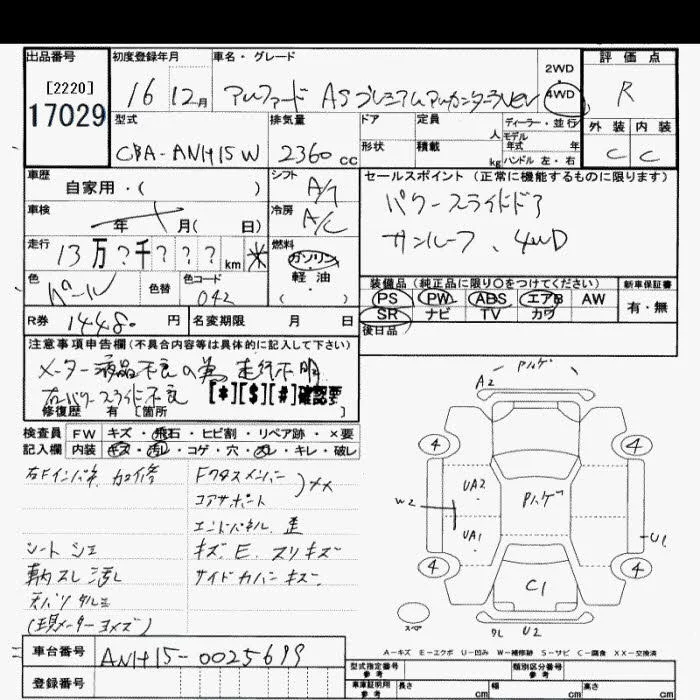 出品番号
[2220]
17029
初度登録年月
16 12月
車名・グレード
アルファード AS プレミアムアルカンターラVer
2WD
4WD
評価点
R
型式
CBA-ANH15W
排気量
2360 cc
ドア
形状
定員
人
積載
kg
ディーラー・並行
モデル
年式 年
ハンドル 左・右
外装 内装
C C
車歴
自家用・( )
シフト
A/T
セールスポイント (正常に機能するものに限ります)
パワースライドドア
サンルーフ、4WD
車検
年 月( 日)
冷房
A/C
走行
13万?千???km *
燃料
ガソリン
軽・油
( )
色
パール
色替
色コード
042
装備品(純正品に限り〇をつけてください)
PS PW ABS エアB AW
SR ナビ TV カワ
新車保証書
有・無
後日品
R券 14480 円
名変期限 月 日
注意事項申告欄(不具合内容等は具体的に記入して下さい)
メーター液晶不良の為走行不明
右パワースライド不良 [*][$][#]確認要
修復歴 有 [箇所 ]
検査員 FW キズ・飛石・ヒビ割・リペア跡・×要
記入欄 内装 キズ・汚レ・コゲ・穴・スレ・キレ・破レ
右Fインパネ 加修
Fクロスメンバー
コアサポート
)××
エンドパネル 歪
シートシミ
キズ、E、スリキズ
革内スレ 汚レ
サイドカバーキズ
天バリタルミ
(現メーターヨメズ)
パルゲ
A2
4 4
UA2
パルゲ
W2
UA1
U1
4 4
C1
スペア
ワレ U2
A-キズ E-エクボ U-凹み W-補修跡 S-サビ C-腐食 XX-交換済
車台番号
ANH15-0025699
登録番号
型式指定番号
参考
類別区分番号
参考
車庫証明用
参考
長さ cm
幅 cm
高さ cm